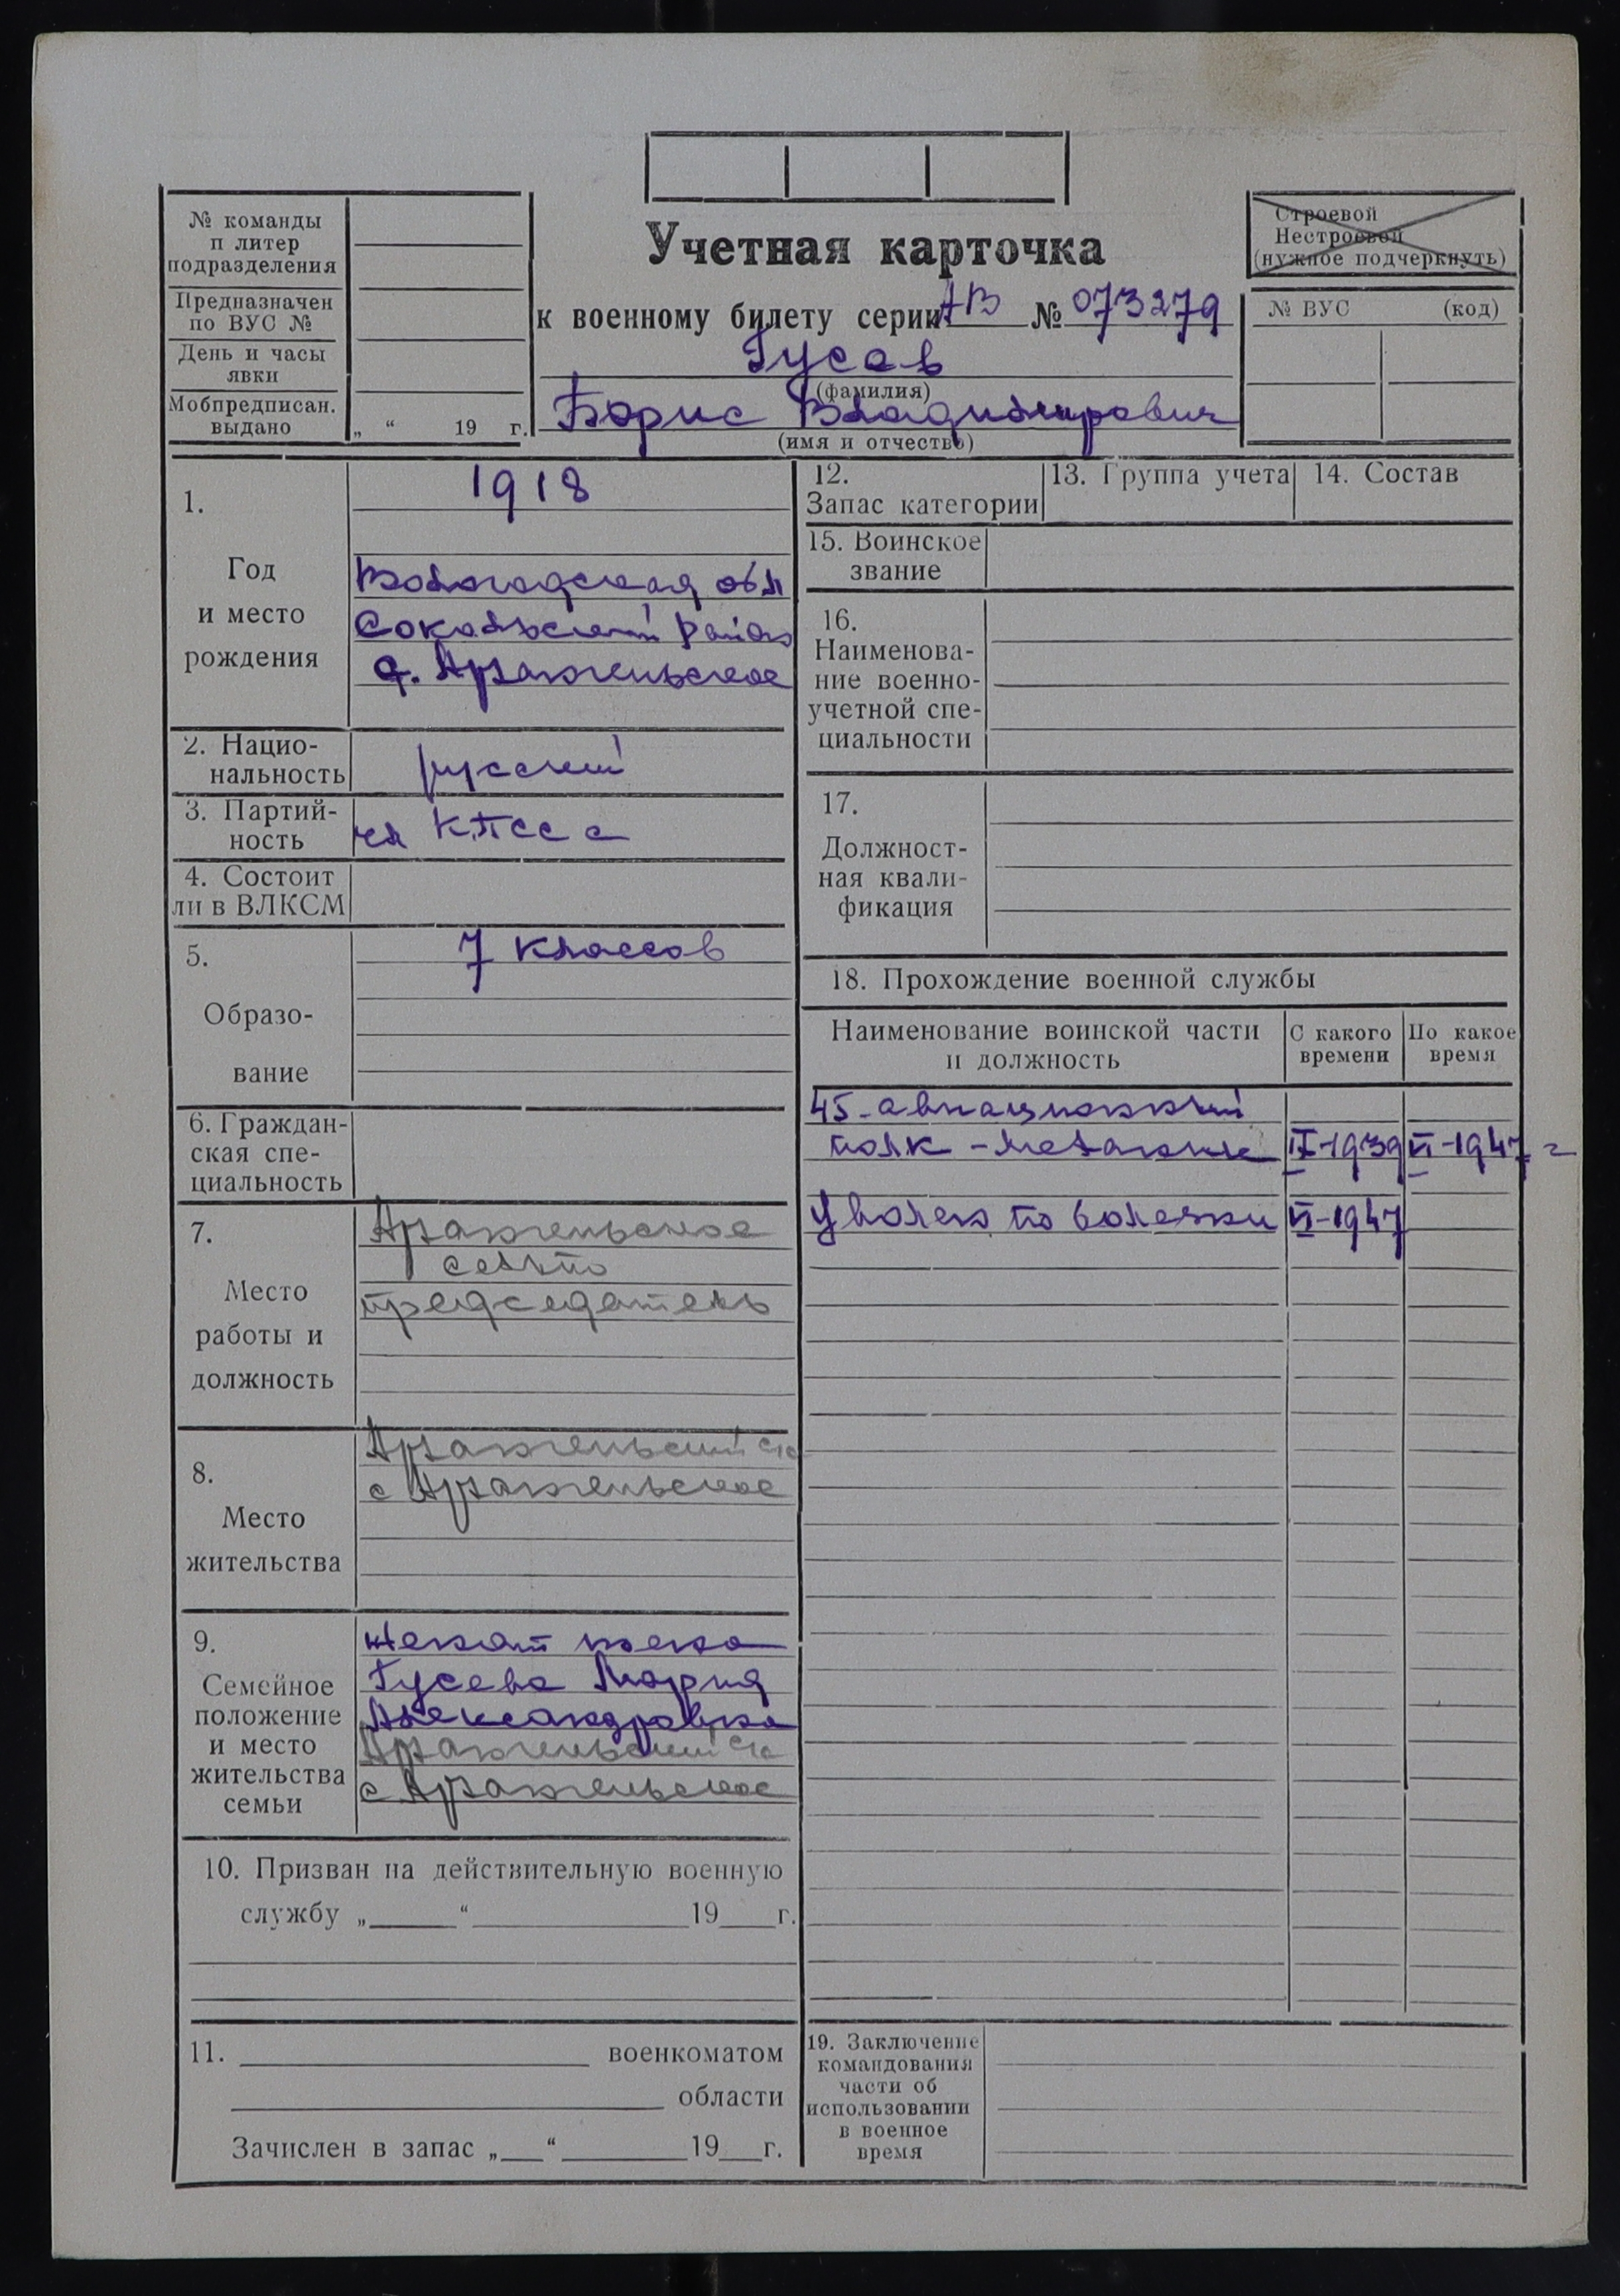 № команды
п литер
подразделения
Предназначен
по ВУС №
День и часы
явки
Мобпредписан.
выдано
„ “ 19 г.
Учетная карточка
к военному билету серии АВ № 073279
Гусев
(фамилия)
Борис Владимирович
(имя и отчество)
Строевой
Нестроевой
(нужное подчеркнуть)
№ ВУС (код)
1.
Год
и место
рождения
1918
Вологодская обл
Сокольский район
д. Архангельское
2. Нацио-
нальность
русский
3. Партий-
ность
чл КПСС
4. Состоит
ли в ВЛКСМ
5.
Образо-
вание
7 классов
6. Граждан-
ская спе-
циальность
7.
Место
работы и
должность
Архангельское
сельпо
председатель
8.
Место
жительства
Архангельский с/с
с Архангельское
9.
Семейное
положение
и место
жительства
семьи
женат жена
Гусева Мария
Александровна
Архангельский с/с
с Архангельское
10. Призван на действительную военную
службу „ “ 19 г.
11. военкоматом
области
Зачислен в запас „ “ 19 г.
12.
Запас категории
13. Группа учета
14. Состав
15. Воинское
звание
16.
Наименова-
ние военно-
учетной спе-
циальности
17.
Должност-
ная квали-
фикация
18. Прохождение военной службы
Наименование воинской части
и должность
С какого
времени
По какое
время
45-авиационный
полк - механик IX-1939 VI-1947 г
Уволен по болезни VI-1947
19. Заключение
командования
части об
использовании
в военное
время